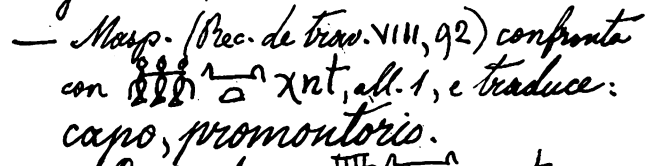 — Masp. (Rec. de trav. VIII, 92) confronta
con χnt, all. 1, e traduce:
capo, promontorio.